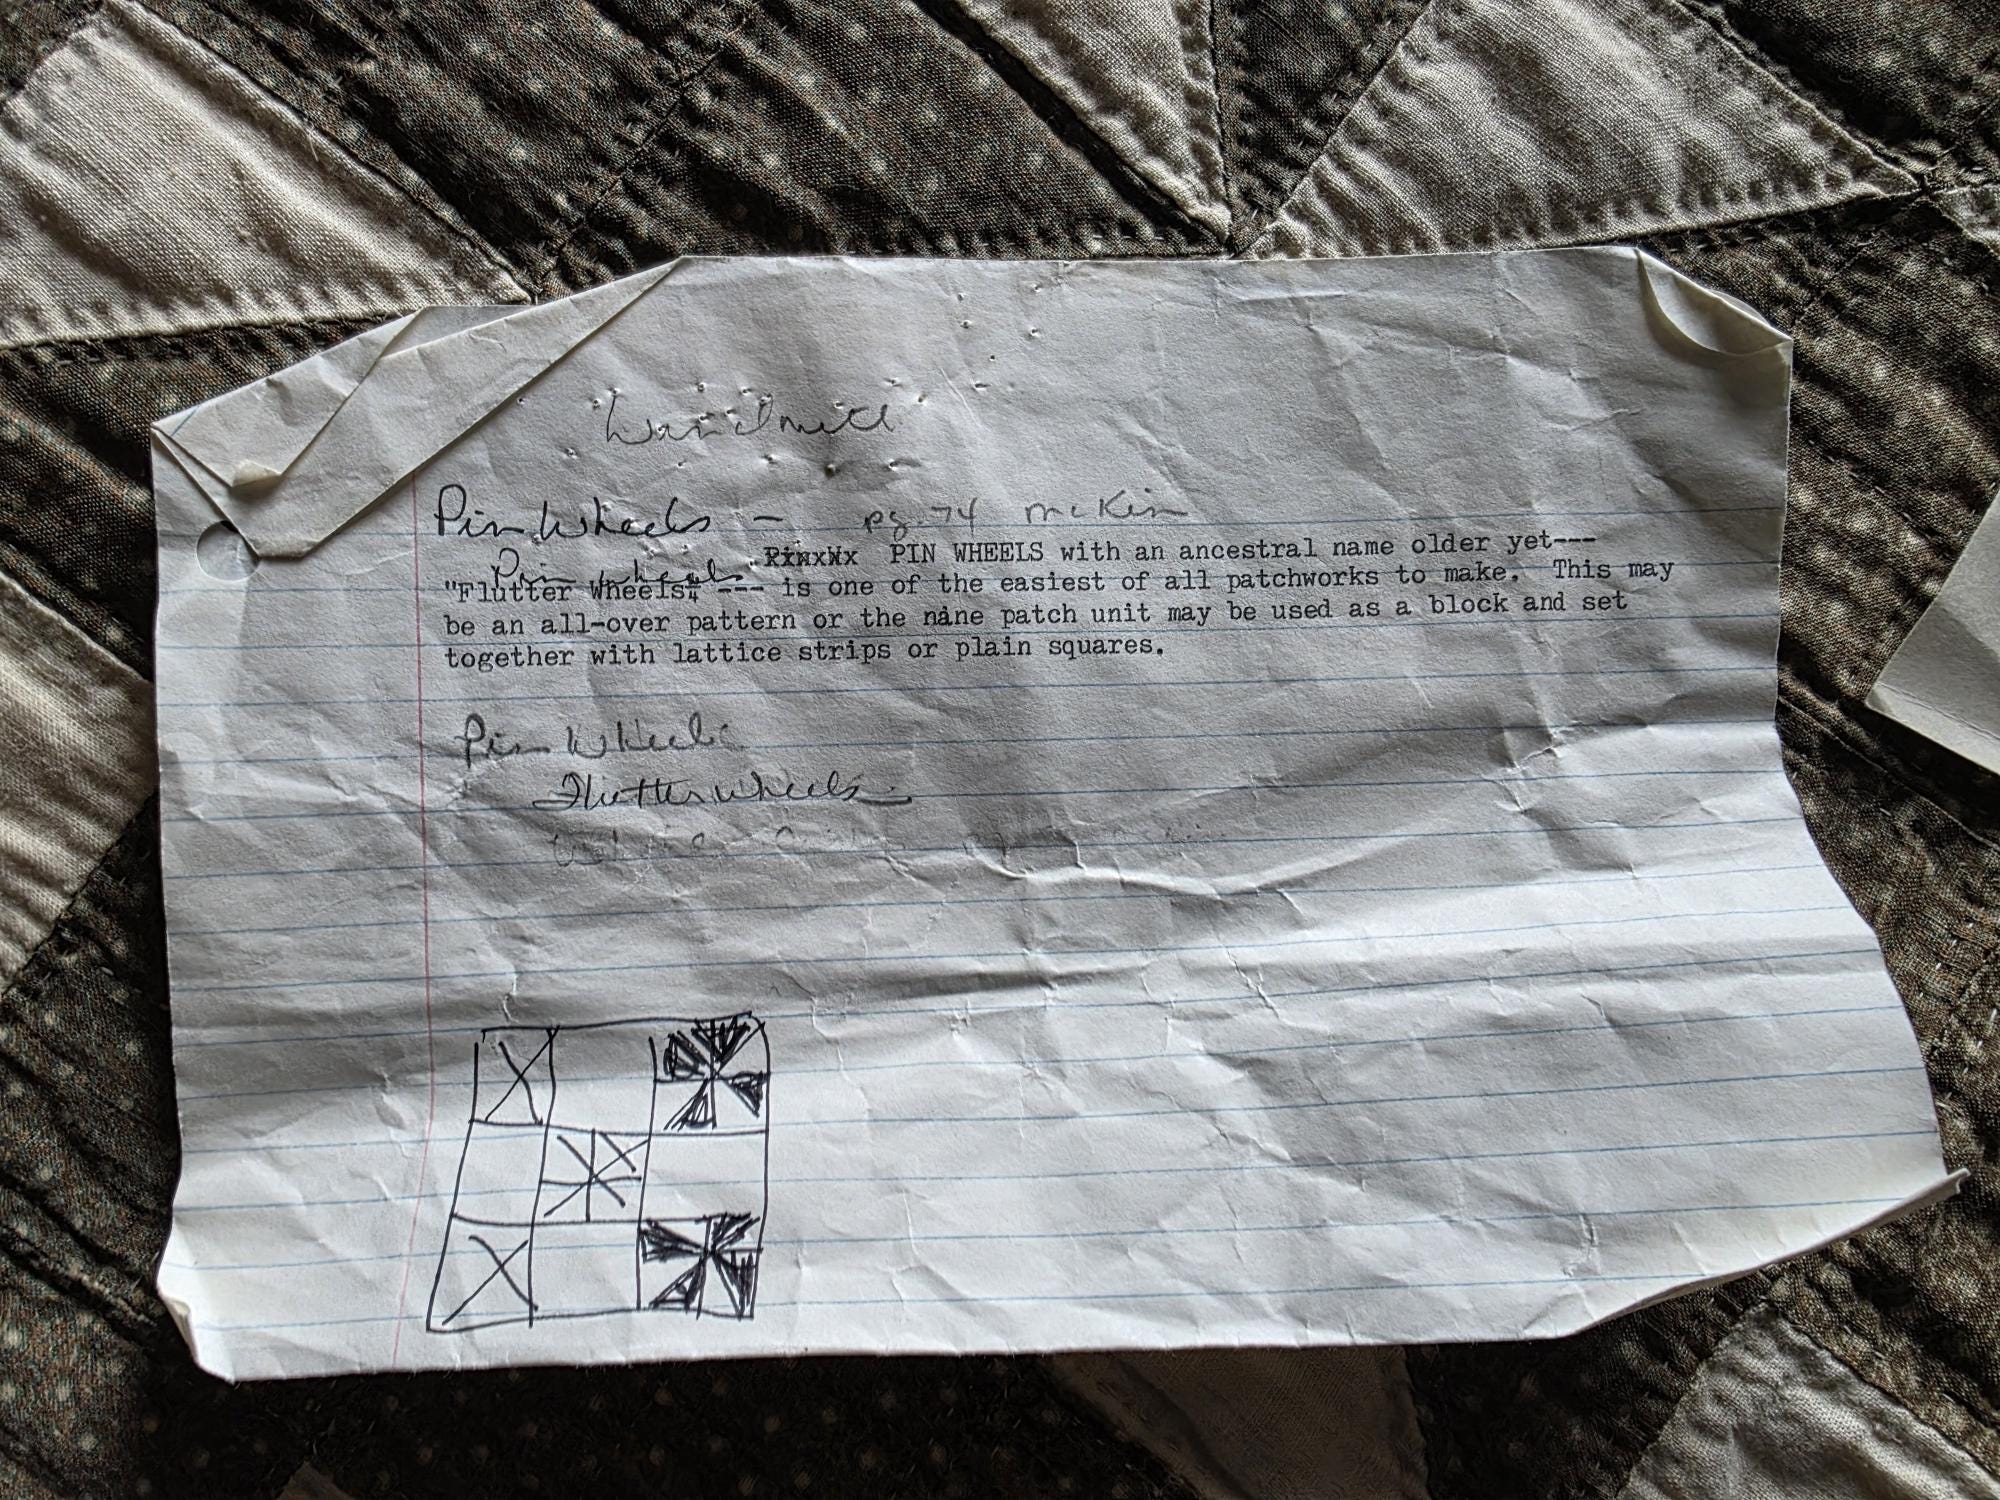 Windmill
Pin Wheels - pg. 74 McKim
Pin Wheels .PinxWx PIN WHEELS with an ancestral name older yet---
"Flutter Wheels," --- is one of the easiest of all patchworks to make. This may
be an all-over pattern or the nine patch unit may be used as a block and set
together with lattice strips or plain squares.
Pin Wheels
Flutter Wheels